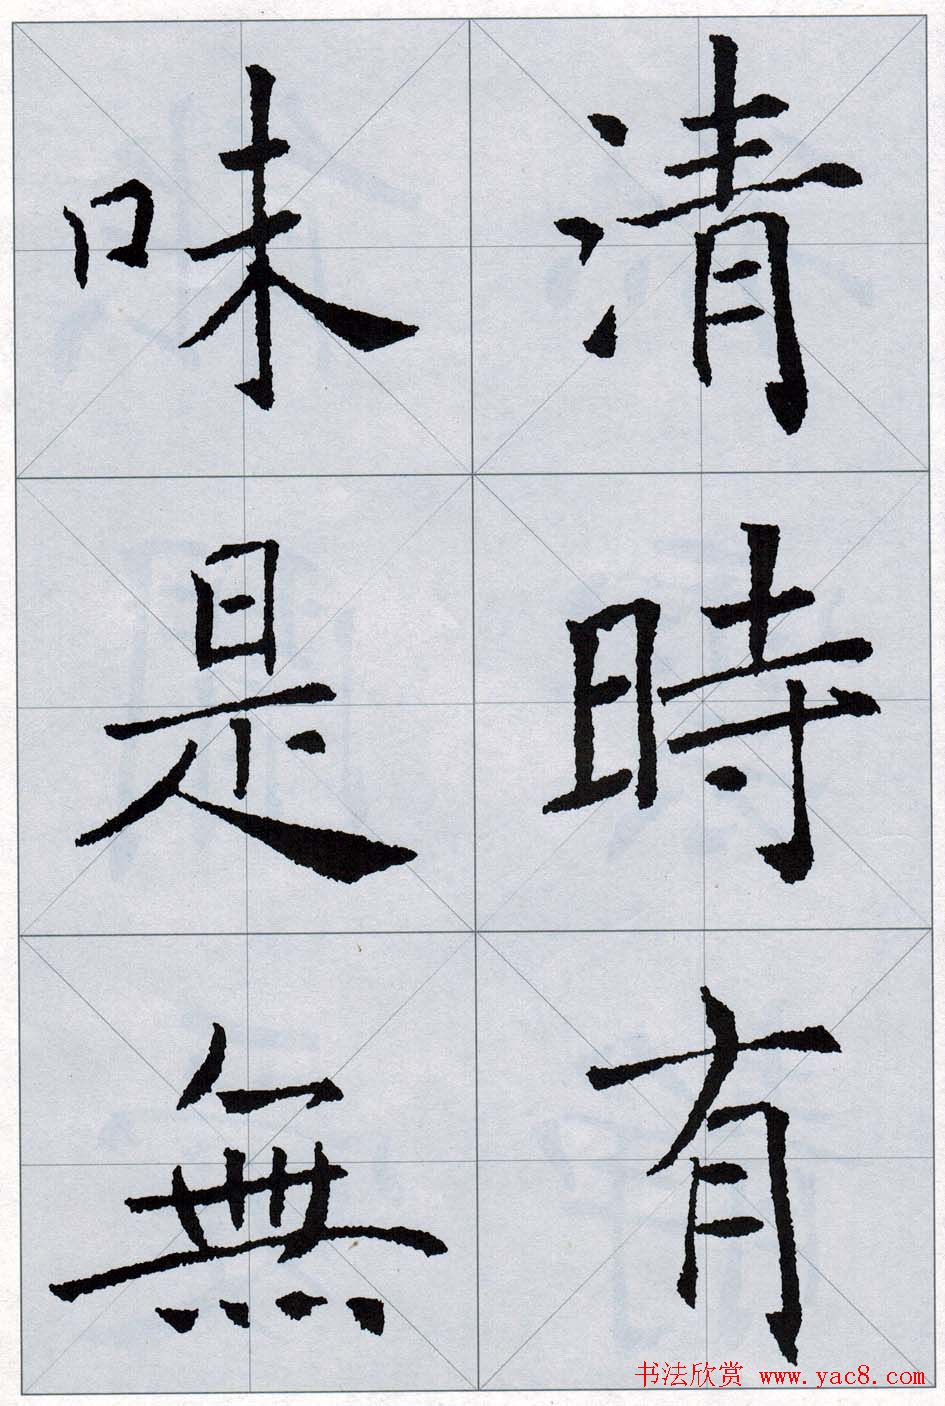 清時有
味是無
书法欣赏 www.yac8.com